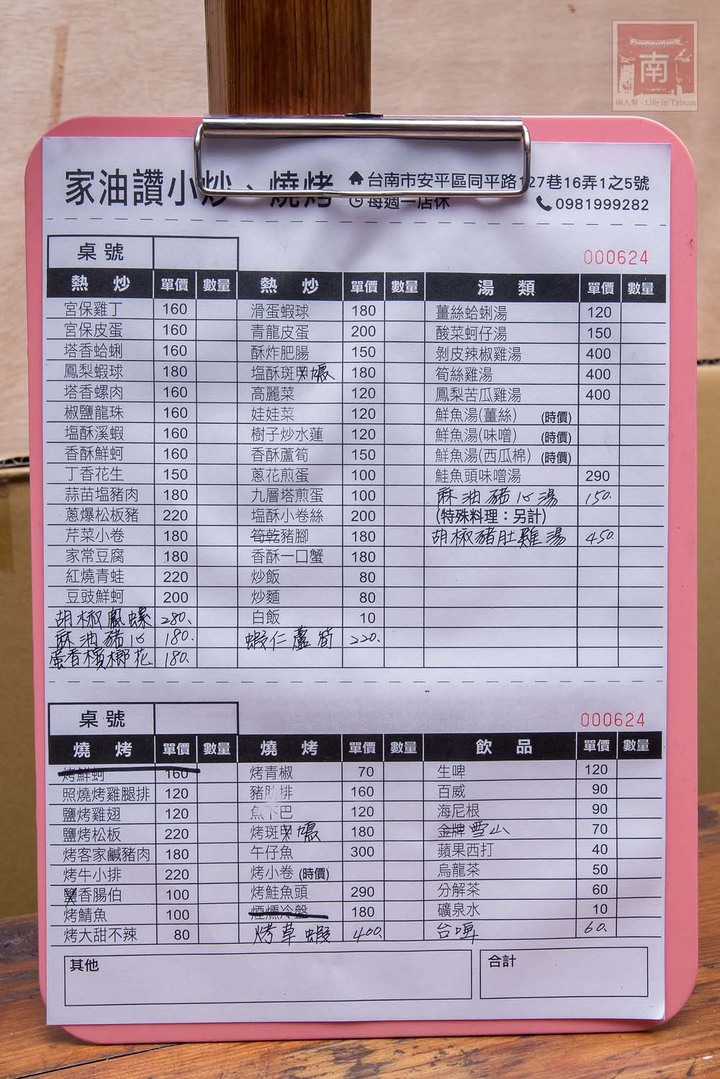 南
南人幫 - Life in Tainan
家油讚小炒、燒烤
台南市安平區同平路127巷16弄1之5號
每週一店休 0981999282
桌號
000624
熱炒 單價 數量 熱炒 單價 數量 湯類 單價 數量
宮保雞丁 160 滑蛋蝦球 180 薑絲蛤蜊湯 120
宮保皮蛋 160 青龍皮蛋 200 酸菜蚵仔湯 150
塔香蛤蜊 160 酥炸肥腸 150 剝皮辣椒雞湯 400
鳳梨蝦球 180 塩酥斑 180 筍絲雞湯 400
塔香螺肉 160 高麗菜 120 鳳梨苦瓜雞湯 400
椒鹽龍珠 160 娃娃菜 120 鮮魚湯(薑絲) (時價)
塩酥溪蝦 160 樹子炒水蓮 120 鮮魚湯(味噌) (時價)
香酥鮮蚵 160 香酥蘆筍 150 鮮魚湯(西瓜棉) (時價)
丁香花生 150 蔥花煎蛋 100 鮭魚頭味噌湯 290
蒜苗塩豬肉 180 九層塔煎蛋 100 麻油豬心湯 150.
蔥爆松板豬 220 塩酥小卷絲 200 (特殊料理：另計)
芹菜小卷 180 筍乾豬腳 180 胡椒豬肚雞湯 450.
家常豆腐 180 香酥一口蟹 180
紅燒青蛙 220 炒飯 80
豆豉鮮蚵 200 炒麵 80
胡椒鳳螺 280. 白飯 10
麻油豬心 180. 蝦仁蘆筍 220.
蛋香檳榔花 180.
桌號
000624
燒烤 單價 數量 燒烤 單價 數量 飲品 單價 數量
烤鮮蚵 160 烤青椒 70 生啤 120
照燒烤雞腿排 120 豬 排 160 百威 90
鹽烤雞翅 120 魚下巴 120 海尼根 90
鹽烤松板 220 烤斑 180 金牌 雪山 70
烤客家鹹豬肉 180 午仔魚 300 蘋果西打 40
烤牛小排 220 烤小卷 (時價) 烏龍茶 50
香腸伯 100 烤鮭魚頭 290 分解茶 60
烤鯖魚 100 煙燻冷盤 180 礦泉水 10
烤大甜不辣 80 烤草蝦 400. 台啤 60.
其他 合計